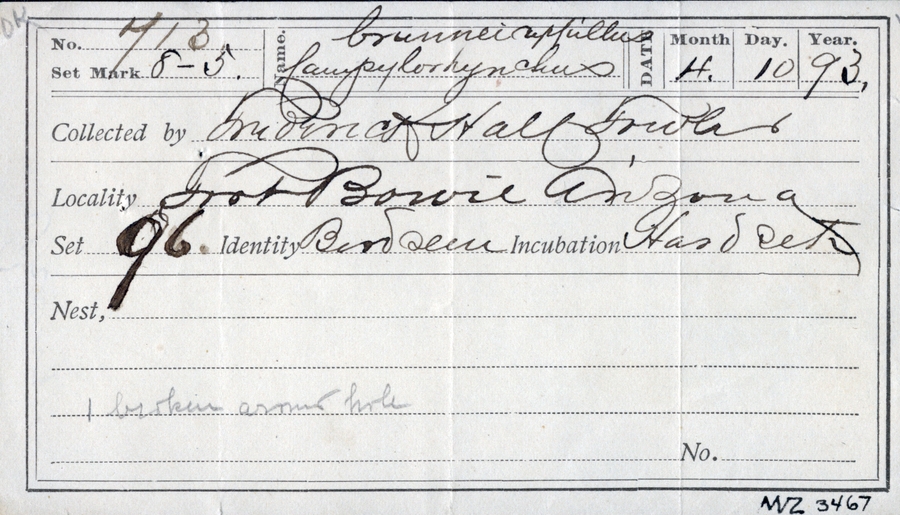 OK
No. 713 Name. brunneicapillus DATE Month Day. Year.
Set Mark 8-5. Campylorhynchus 4. 10 93,
Collected by Frederick Hall Fowler
Locality Fort Bowie Arizona
Set 96. Identity Bird seen Incubation Hard set
Nest,
1 broken around hole
No.
MVZ 3467